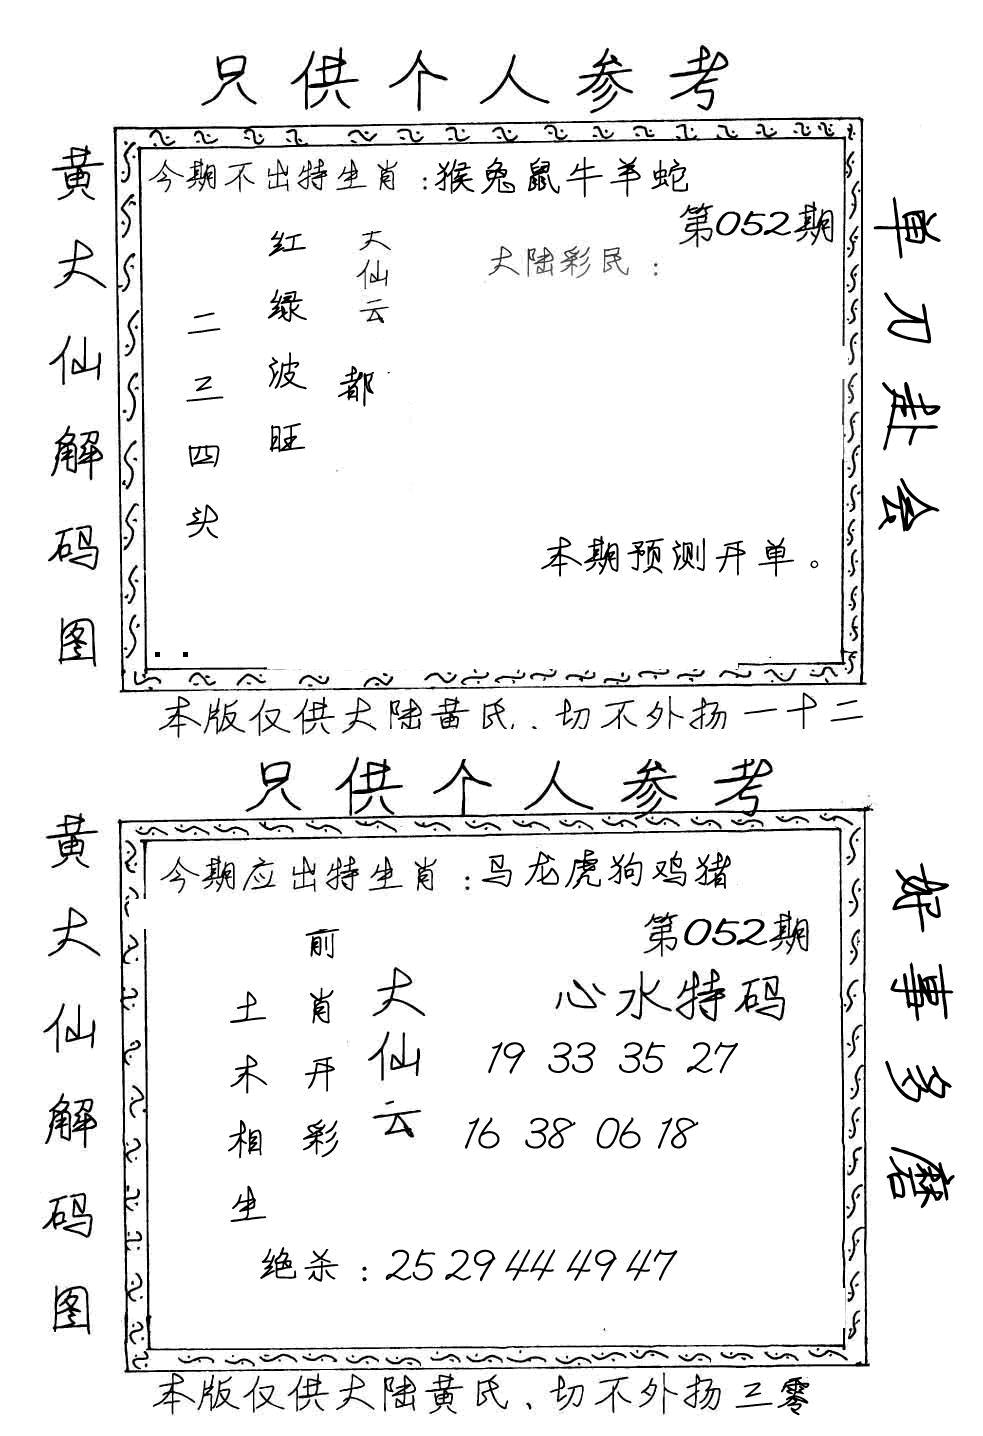 只供个人参考
黄大仙解码图
今期不出特生肖：猴兔鼠牛羊蛇
第052期
大陆彩民：
大仙云
都
红绿波旺
二三四头
本期预测开单。
单刀赴会
本版仅供大陆黄氏、切不外扬一十二
只供个人参考
黄大仙解码图
今期应出特生肖：马龙虎狗鸡猪
第052期
心水特码
19 33 35 27
16 38 06 18
大仙云
前肖开彩
土木相生
绝杀：25 29 44 49 47
好事多磨
本版仅供大陆黄氏、切不外扬三零